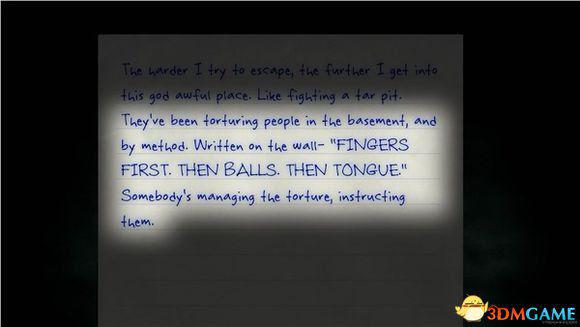 The harder I try to escape, the further I get into
this god awful place. Like fighting a tar pit.
They've been torturing people in the basement, and
by method. Written on the wall- "FINGERS
FIRST. THEN BALLS. THEN TONGUE."
Somebody's managing the torture, instructing
them.
3DMGAME